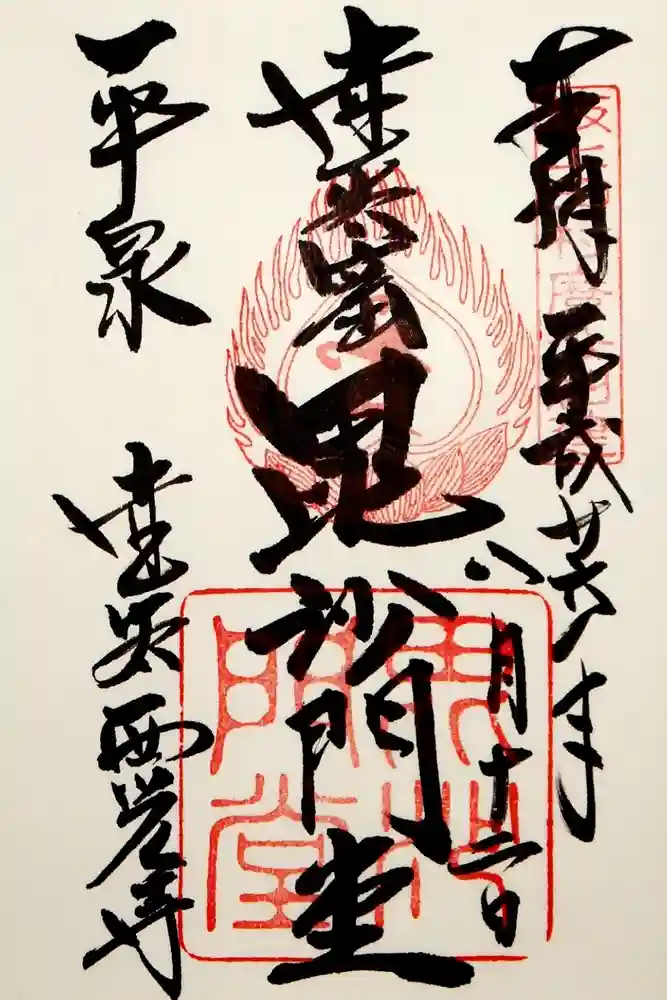 奉拝 平成廿六年
八月十二日
達谷窟毘沙門堂
平泉 達谷西光寺
毘沙門堂